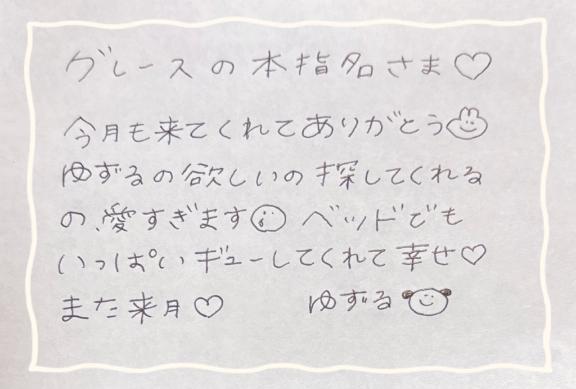 グレースの本指名さま♡
今月も来てくれてありがとう
ゆずるの欲しいの探してくれる
の、愛すぎます ベッドでも
いっぱいギューしてくれて幸せ♡
また来月♡ ゆずる